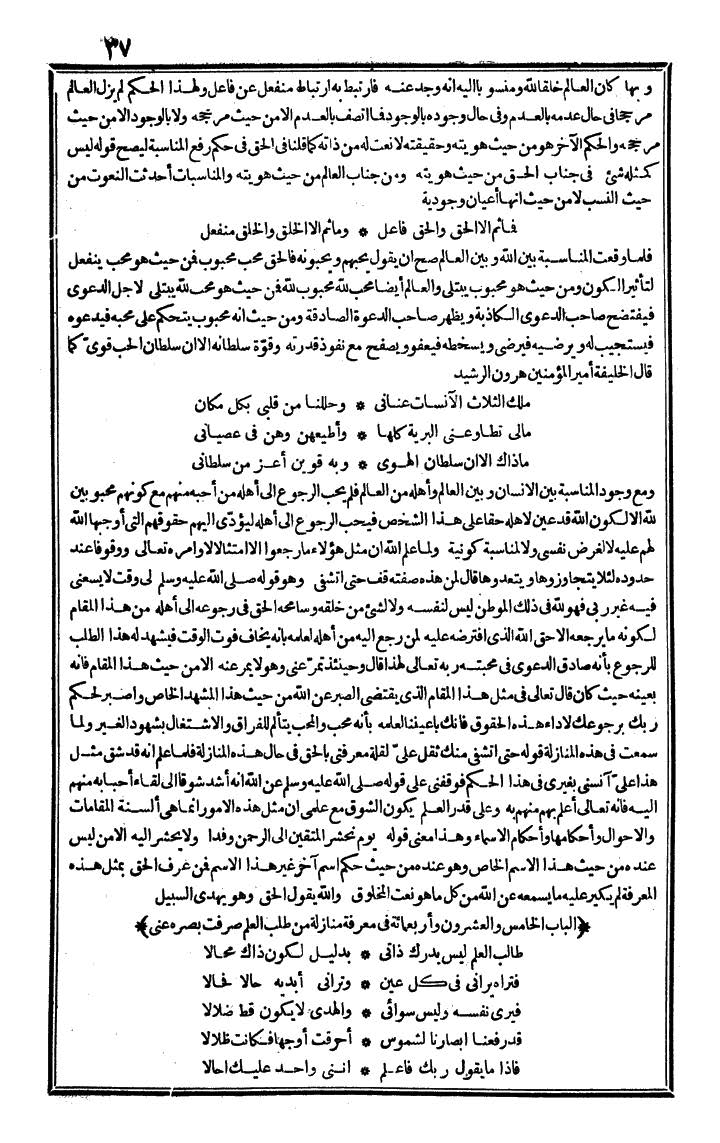 ٣٧
وبها كان العالم خلقا لله ومنسوبا اليه انه وجد عنه فارتبط به ارتباط منفعل عن فاعل ولهذا الحكم لم يزل العالم
مرجحا فى حال عدمه بالعدم وفى حال وجوده بالوجود فما اتصف بالعدم الا من حيث مرجحه ولا بالوجود الا من حيث
مرجحه والحكم الآخر هو من حيث هويته وحقيقته لا نعت له من ذاته كما قلنا فى الحق فى حكم رفع المناسبة ليصح قوله ليس
كمثله شئ فى جناب الحق من حيث هويته ومن جناب العالم من حيث هويته والمناسبات أحدثت النعوت من
حيث النسب لا من حيث انها أعيان وجودية
فما ثم الا الحق والحق فاعل * وما ثم الا الخلق والخلق منفعل
فلما وقعت المناسبة بين الله وبين العالم صح ان يقول يحبهم ويحبونه فالحق محب محبوب فمن حيث هو محب ينفعل
لتأثير الكون ومن حيث هو محبوب يبتلى والعالم أيضا محب لله محبوب لله فمن حيث هو محب لله يبتلى لاجل الدعوى
فيفتضح صاحب الدعوى الكاذبة ويظهر صاحب الدعوة الصادقة ومن حيث انه محبوب يتحكم على محبه فيدعوه
فيستجيب له ويرضيه فيرضى ويسخطه فيعفو ويصفح مع نفوذ قدرته وقوّة سلطانه الا ان سلطان الحب قوىّ كما
قال الخليفة أمير المؤمنين هرون الرشيد
ملك الثلاث الآنسات عنانى * وحللنا من قلبى بكل مكان
مالى تطاوعنى البرية كلها * وأطيعهن وهن فى عصيانى
ما ذاك الا ان سلطان الهوى * وبه قوين أعز من سلطانى
ومع وجود المناسبة بين الانسان وبين العالم وأهله من العالم فلم يحب الرجوع الى أهله من أحبه منهم مع كونهم محبوبين
لله الا لكون الله قد عين لاهله حقا على هذا الشخص فيحب الرجوع الى أهله ليؤدّى اليهم حقوقهم التى أوجبها الله
لهم عليه لا لغرض نفسى ولا لمناسبة كونية ولما علم الله ان مثل هؤلاء ما رجعوا الا امتثالا لاوامره تعالى ووقوفا عند
حدوده لئلا يتجاوزوها ويتعدوها قال لمن هذه صفته قف حتى اتشفى وهو قوله صلى الله عليه وسلم لى وقت لا يسعنى
فيه غير ربى فهو لله فى ذلك الموطن ليس لنفسه ولا لشئ من خلقه وسامحه الحق فى رجوعه الى أهله من هذا المقام
لكونه ما يرجعه الا حق الله الذى افترضه عليه لمن رجع اليه من أهله لعلمه بانه يخاف فوت الوقت فيشهد له هذا الطلب
للرجوع بأنه صادق الدعوى فى محبته ربه تعالى لهذا قال وحينئذ تمرّ عنى وهو لا يمر عنه الا من حيث هذا المقام فانه
بعينه حيث كان قال تعالى فى مثل هذا المقام الذى يقتضى الصبر عن الله من حيث هذا المشهد الخاص واصبر لحكم
ربك برجوعك لاداء هذه الحقوق فانك باعيننا لعلمه بأنه محب والمحب يتألم للفراق والاشتغال بشهود الغير ولما
سمعت فى هذه المنازلة قوله حتى اتشفى منك ثقل علىّ لقلة معرفتى بالحق فى حال هذه المنازلة فلما علم انه قد شق مثل
هذا علىّ آنسنى بغيرى فى هذا الحكم فوقفنى على قوله صلى الله عليه وسلم عن الله انه أشد شوقا الى لقاء أحبابه منهم
اليه فانه تعالى أعلم بهم منهم به وعلى قدر العلم يكون الشوق مع علمى ان مثل هذه الامور انما هى ألسنة المقامات
والاحوال وأحكامها وأحكام الاسماء وهذا معنى قوله يوم نحشر المتقين الى الرحمن وفدا ولا يحشر اليه الا من ليس
عنده من حيث هذا الاسم الخاص وهو عنده من حيث حكم اسم آخر غير هذا الاسم فمن عرف الحق بمثل هذه
المعرفة لم يكبر عليه ما يسمعه عن الله من كل ما هو نعت المخلوق والله يقول الحق وهو يهدى السبيل
﴿الباب الخامس والعشرون وأربعمائة فى معرفة منازلة من طلب العلم صرفت بصره عنى﴾
طالب العلم ليس يدرك ذاتى * بدليل لكون ذاك محالا
فتراه يرانى فى كل عين * وترانى أبديه حالا فحالا
فيرى نفسه وليس سوائى * والهدى لا يكون قط ضلالا
قد رفعنا ابصارنا لشموس * أحرقت أوجها فكانت ظلالا
فاذا ما يقول ربك فاعلم * اننى واحد عليك احالا